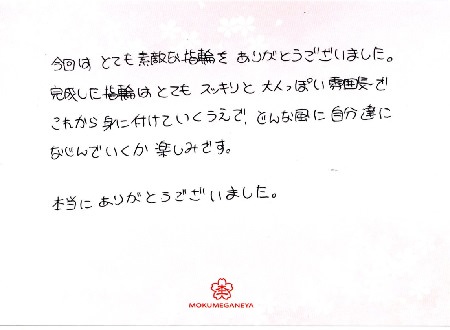 今回は とても 素敵な 指輪を ありがとうございました。
完成した指輪は とても スッキリと 大人っぽい 雰囲気で
これから 身に付けていくうえで、どんな風に 自分達に
なじんでいくか 楽しみです。
本当に ありがとうございました。
MOKUMEGANEYA